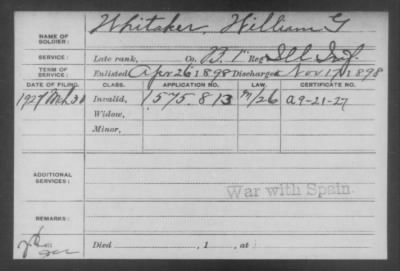 NAME OF SOLDIER: Whitaker, William G
SERVICE: Late rank, Co. B. 1" Reg Ill Inf.
TERM OF SERVICE: Enlisted Apr 26 1898 Discharged Nov 17 1898
DATE OF FILING. CLASS. APPLICATION NO. LAW. CERTIFICATE NO.
1927 Mch 30 Invalid, 1575.813 A9-21-27
Widow,
Minor,
ADDITIONAL SERVICES:
War with Spain.
REMARKS:
Died , 1 , at